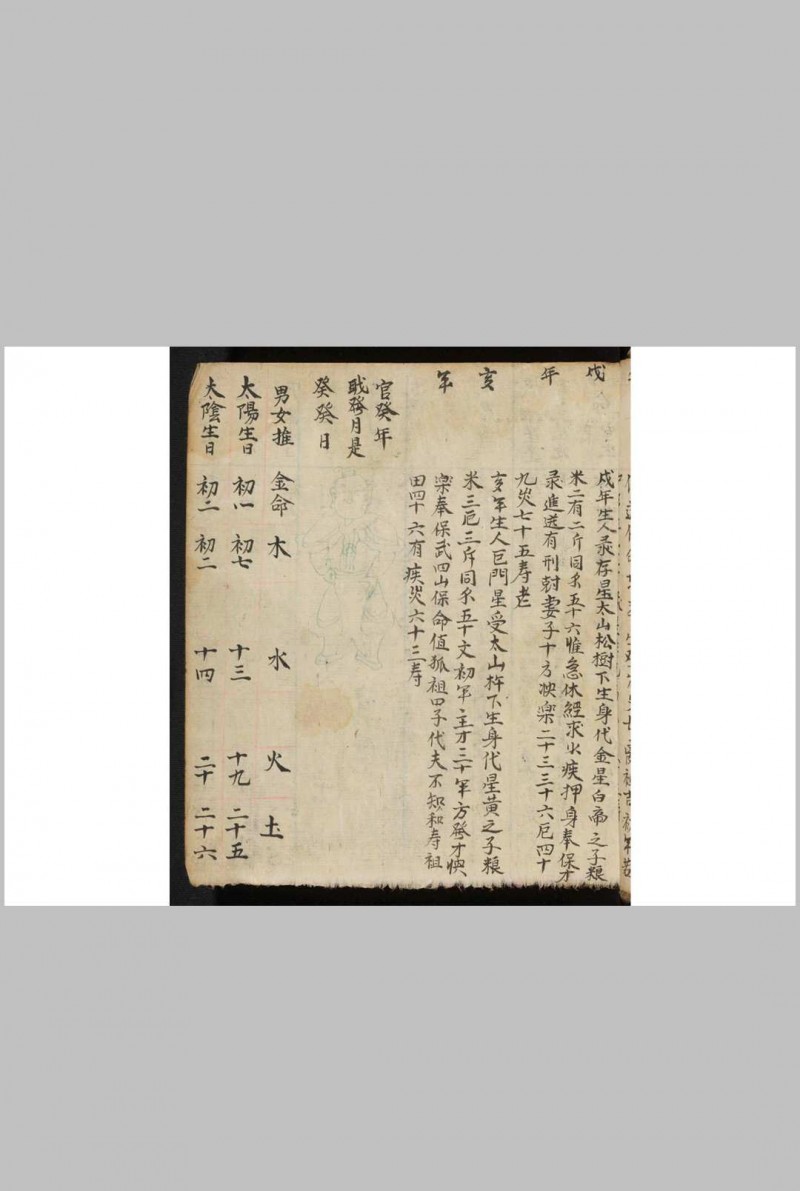 戌
年
戌年生人录存星太山松樹下生身代金星白帝之子粮
米二有二斤同禾五十六惟急休經求火疾押身奉保才
录進送有刑尅妻子十方快楽二十三三十六厄四十
九災七十五寿老
亥
年
亥年生人巨門星受太山杵下生身代星黄之子粮
米三厄三斤同禾五十文初军主才三十军方發才怏
楽奉保武四山保命值狐祖四子代夫不知和寿祖
田四十六有疾災六十三寿
官癸年
戢發月是
癸癸日
男女推 金命 木 水 火 土
太陽生日 初八 初七 十三 十九 二十五
太陰生日 初二 初二 十四 二十 二十六